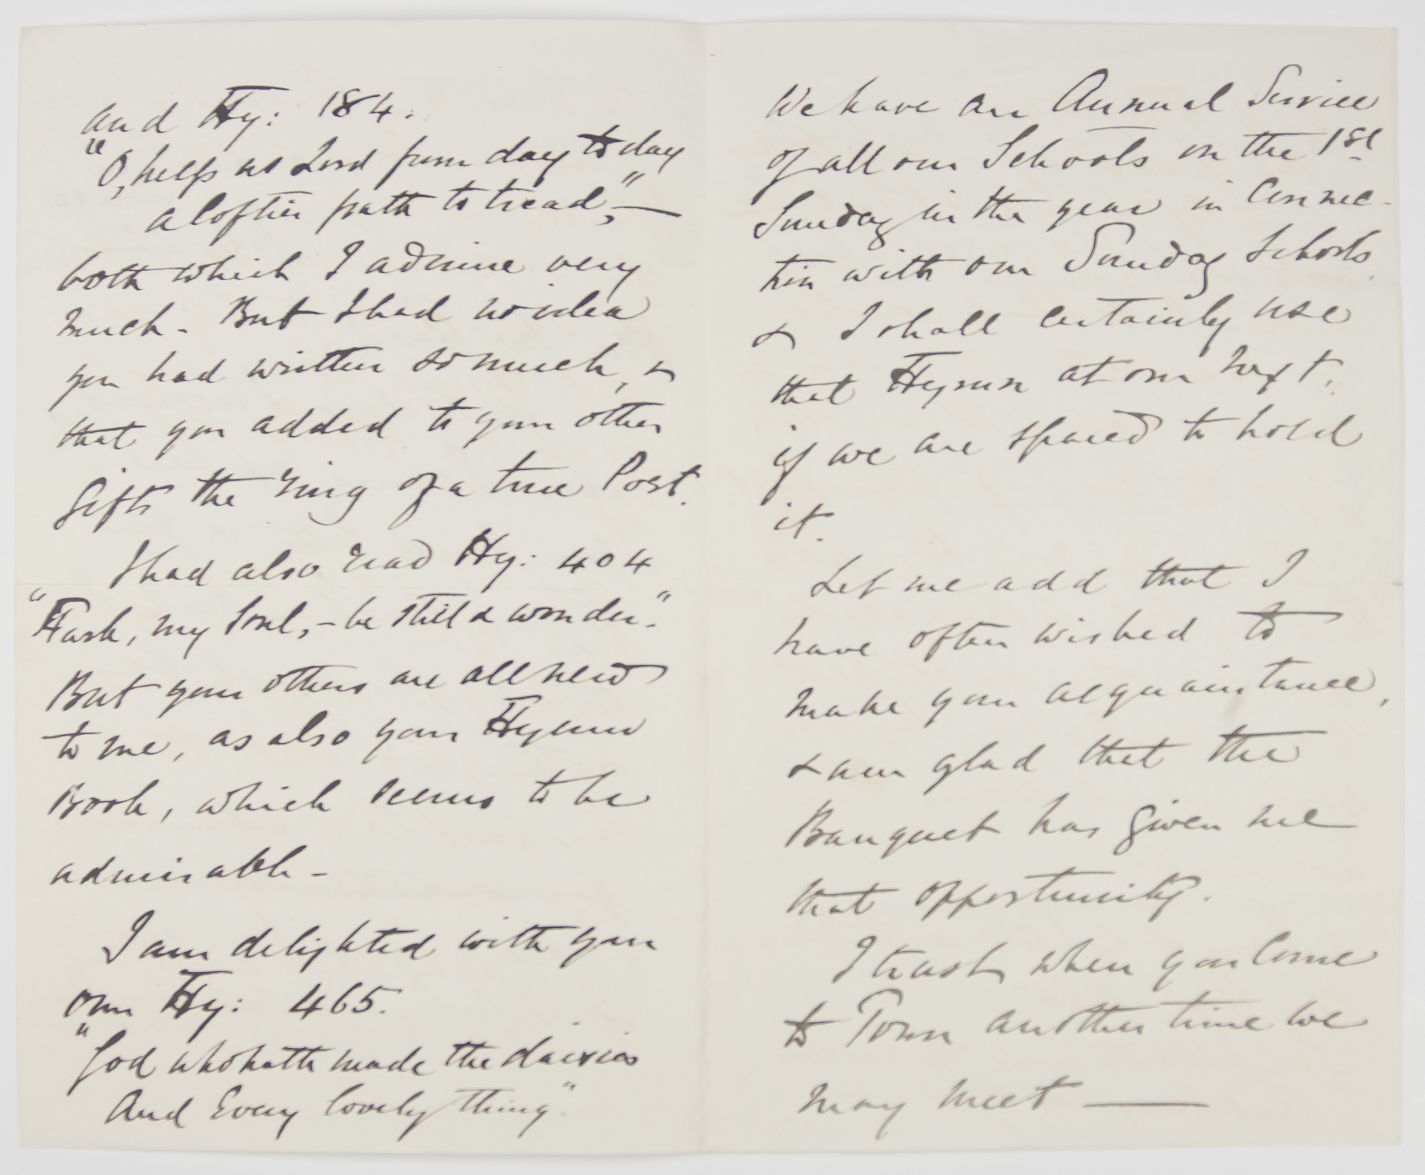 and Hy: 184.
"O, help us Lord from day to day
a loftier path to tread,"—
both which I admire very
much. But I had no idea
you had written so much, &
that you added to your other
gifts the ring of a true Poet.
I had also read Hy: 404
"Hush, my Soul, – be still & wonder."
But your others are all new
to me, as also your Hymn
Book, which seems to be
admirable –
I am delighted with your
own Hy: 465.
"God who hath made the daisies
And Every lovely thing".
We have an Annual Service
of all our Schools on the 1st
Sunday in the year in Connec-
tion with our Sunday Schools
& I shall certainly use
that Hymn at our next,
if we are spared to hold
it.
Let me add that I
have often wished to
make your acquaintance,
& am glad that the
Banquet has given me
that opportunity.
I trust when you Come
to Town another time we
may meet —